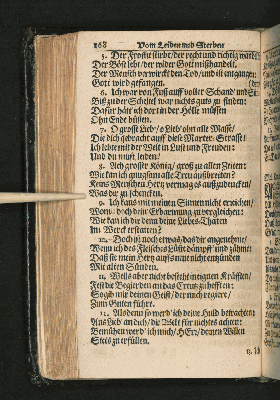 168 Vom Leiden und Sterben
5. Der Fromme stirbt/ der recht und richtig wandelt/
Der Böse lebt/ der wider Gott mißhandelt/
Der Mensch verwirckt den Tod/ und ist entgangen/
Gott wird gefangen.
6. Ich war von Fuß auff voller Schand und Sünden/
Biß zu der Scheitel war nichts guts zu finden:
Dafür hätt ich dort in der Hölle müssen
Ohn Ende büssen.
7. O grosse Lieb/ o Lieb/ ohn alle Masse/
Die dich gebracht auff diese Marter-Strasse!
Ich lebte mit der Welt in Lust und Freuden:
Und du must leiden/
8. Ach grosser König/ groß zu allen Zeiten:
Wie kan ich gnugsam alle Treu außbreiten?
Keins Menschen Hertz vermag es außzudencken/
Was dir zu schencken.
9. Ich kans mit meinen Sinnen nicht erreichen/
Womit doch dein Erbarmung zu vergleichen:
Wie kan ich dir denn deine Liebes-Thaten
Im Werck erstatten?
10. Doch ist noch etwas/ das dir angenehme/
Wenn ich des Fleisches Lüste dämpff und zähme/
Daß sie mein Hertz auffs neue nicht entzünden
Mit alten Sünden.
11. Weils aber nicht besteht in eignen Kräfften/
Fest die Begierden an das Creutz zu hefften:
So gib mir deinen Geist/ der mich regiere/
Zum Guten führe.
12. Alsdenn so werd' ich deine Huld betrachten;
Aus Lieb' an dich/ die Welt für nichtes achten:
Bemühen werd' ich mich/ HErr/ deinen Willen
Stets zu erfüllen.